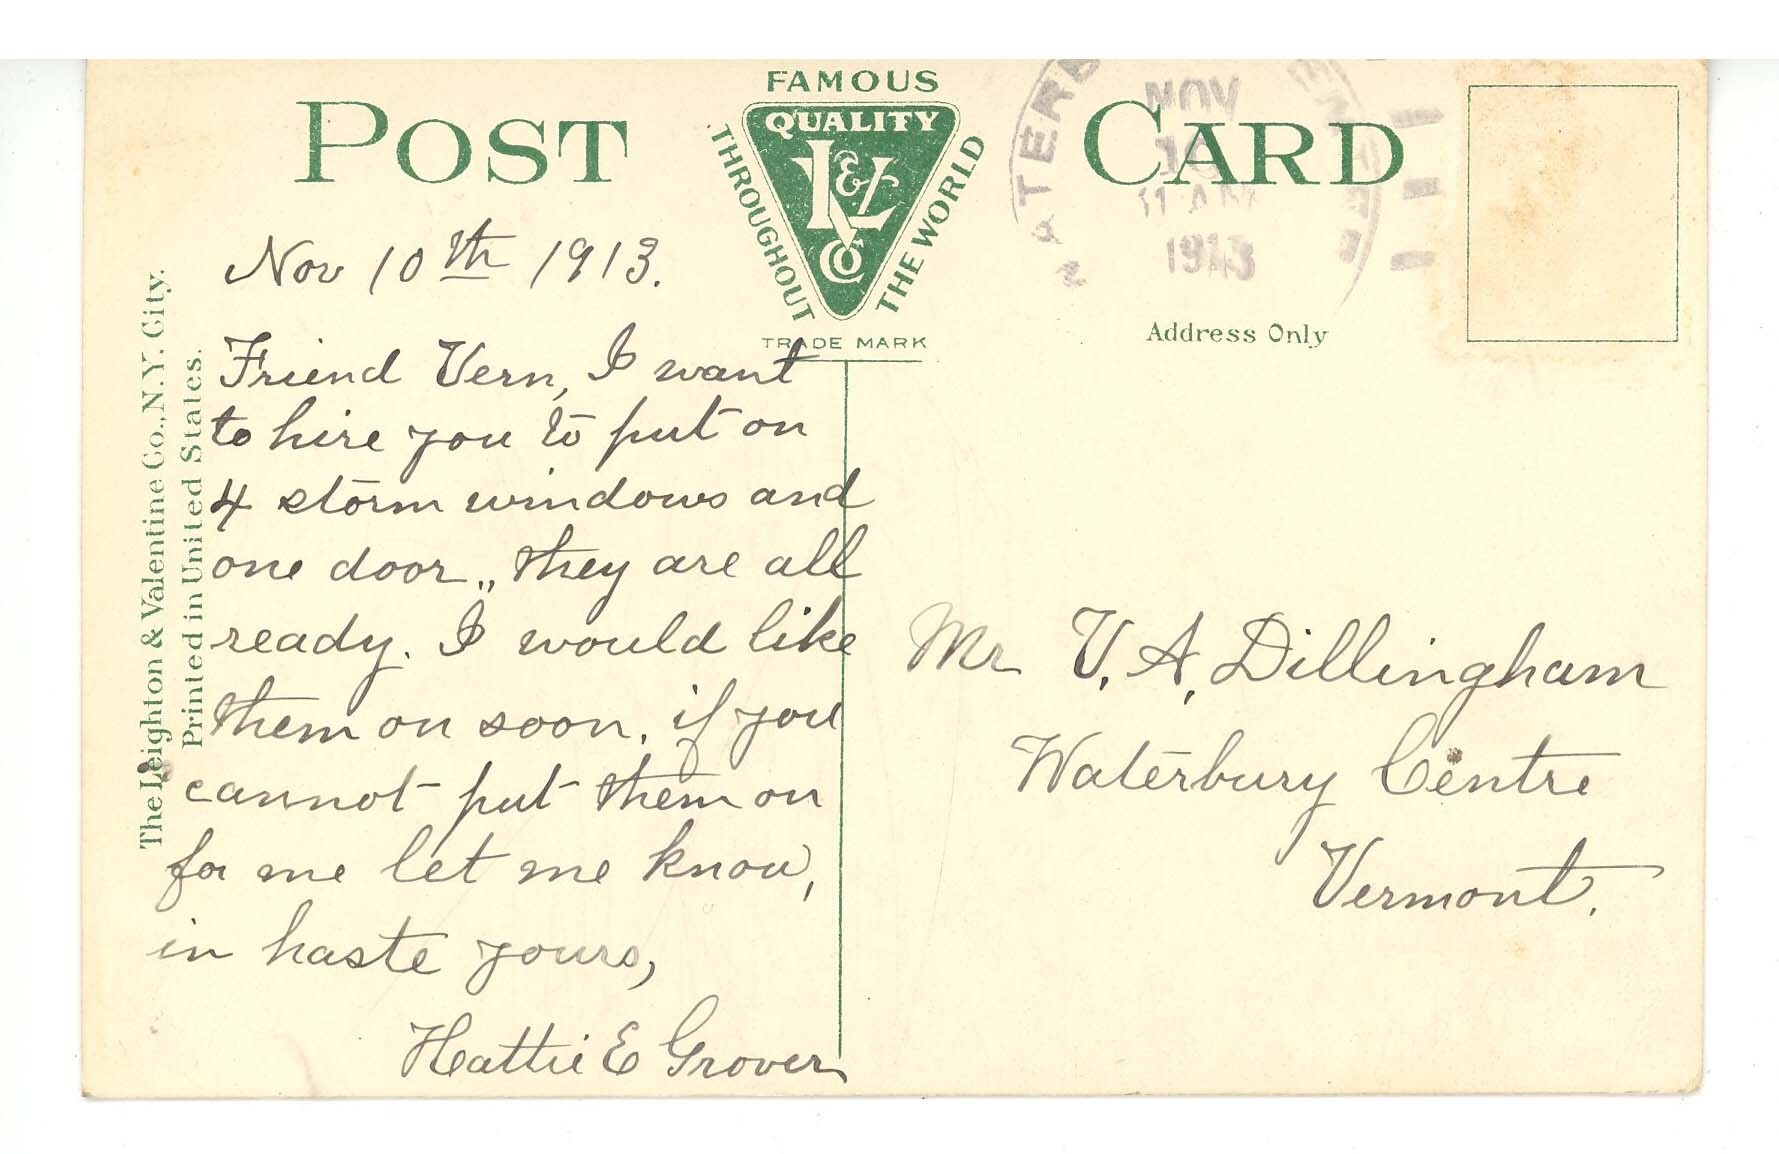 POST CARD
FAMOUS
QUALITY
THROUGHOUT
THE WORLD
L&V
Co
TRADE MARK
NOV
10
11 AM
1913
Address Only
The Leighton & Valentine Co., N.Y. City.
Printed in United States.
Nov 10th 1913.
Friend Vern, I want
to hire you to put on
4 storm windows and
one door,, they are all
ready. I would like
them on soon. if you
cannot put them on
for me let me know,
in haste yours,
Hattie E Grover
Mr V. A. Dillingham
Waterbury Centre
Vermont.